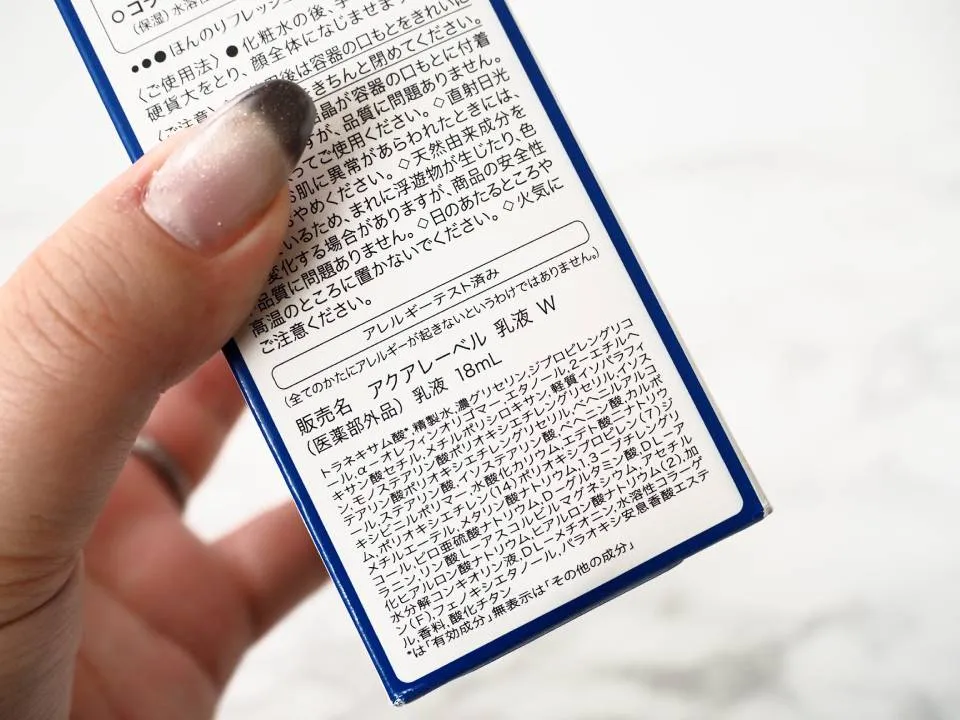 ○コラ
(保湿)水溶
●●●ほんのりフレッシ
〈ご使用法〉●化粧水の後、手
硬貨大をとり、顔全体になじませま
〈ご注意〉 用後は容器の口もとをきれいに
きちんと閉めてください。
晶が容器の口もとに付着
すが、品質に問題ありません。
ってご使用ください。◇直射日光
お肌に異常があらわれたときには、
おやめください。◇天然由来成分を
いるため、まれに浮遊物が生じたり、色
変化する場合がありますが、商品の安全性
品質に問題ありません。◇日のあたるところや
高温のところに置かないでください。◇火気に
ご注意ください。
アレルギーテスト済み
(全てのかたにアレルギーが起きないというわけではありません。)
販売名 アクアレーベル 乳液 W
(医薬部外品) 乳液 18mL
トラネキサム酸*,精製水,濃グリセリン,ジプロピレングリコ
ール,α-オレフィンオリゴマー,エタノール,2-エチルヘ
キサン酸セチル,メチルポリシロキサン,軽質イソパラフィ
ン,モノステアリン酸ポリオキシエチレングリセリル,イソス
テアリン酸,ステアリン酸,ベヘニルアルコ
ール,ステアリン酸,ベヘニン酸,カルボ
キシビニルポリマー,水酸化カリウム,エデト酸
ム,ポリオキシエチレン(14)ポリオキシプロピレン(7)ジ
メチルエーテル,メタリン酸ナトリウム,1,3-ブチレングリ
コール,ピロ亜硫酸ナトリウム,D-グルタミン酸,DL-ア
ラニン,リン酸L-アスコルビルマグネシウム,アセチル
化ヒアルロン酸ナトリウム,ヒアルロン酸ナトリウム(2),加
水分解コンキオリン液,DL-メチオニン,水溶性コラーゲ
ン(F),フェノキシエタノール,パラオキシ安息香酸エステ
ル,香料,酸化チタン
*は「有効成分」無表示は「その他の成分」